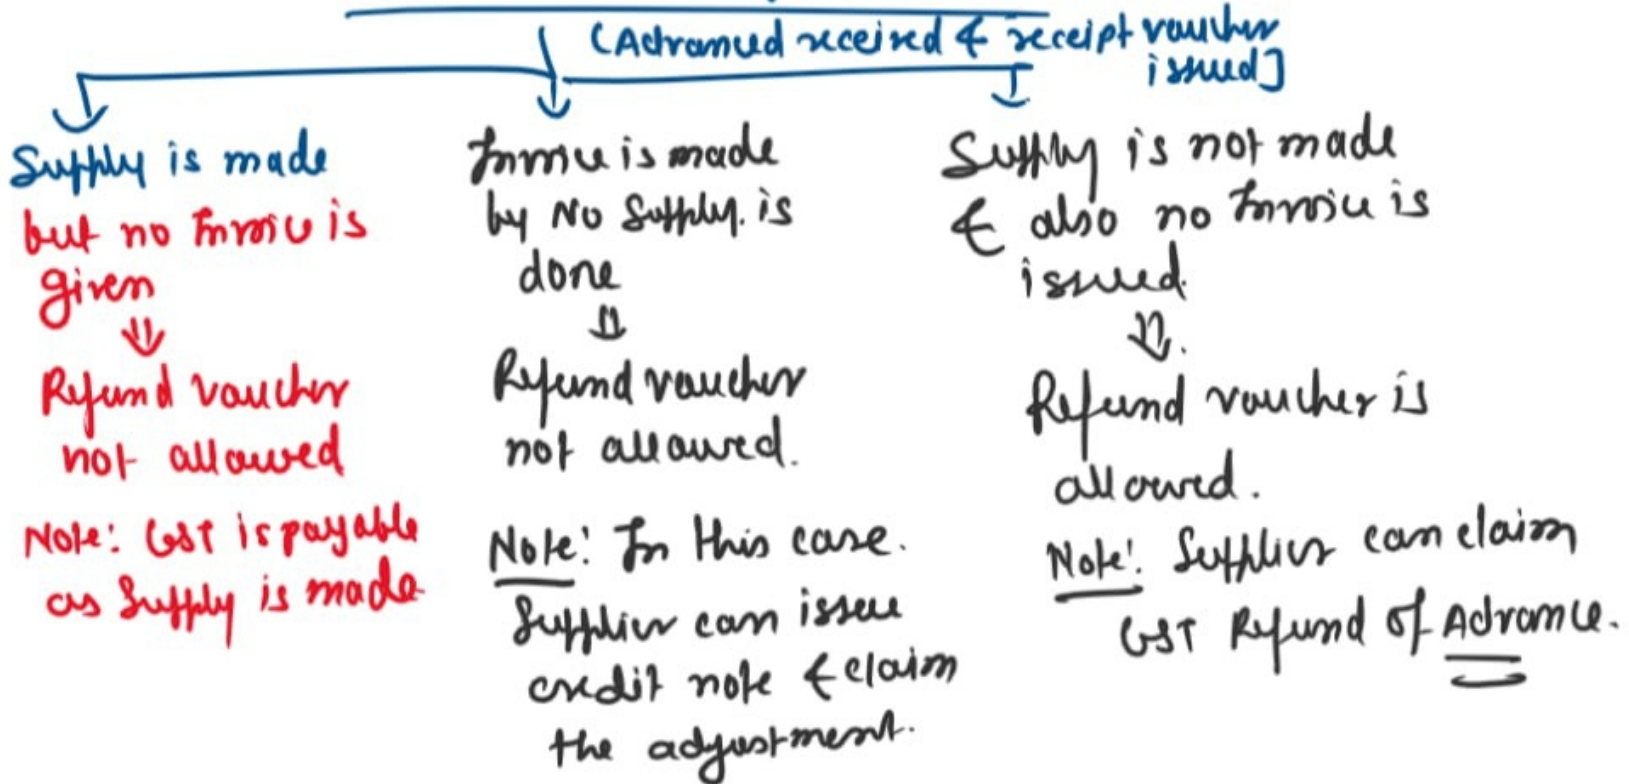 (Advanced received & receipt voucher
issued]
Supply is made
but no Invoice is
given
Refund voucher
not allowed
Note: GST is payable
as Supply is made
Invoice is made
by No Supply. is
done
Refund voucher
not allowed.
Note: In this case.
Supplier can issue
credit note & claim
the adjustment.
Supply is not made
& also no Invoice is
issued.
Refund voucher is
allowed.
Note: Supplier can claim
GST Refund of Advance.